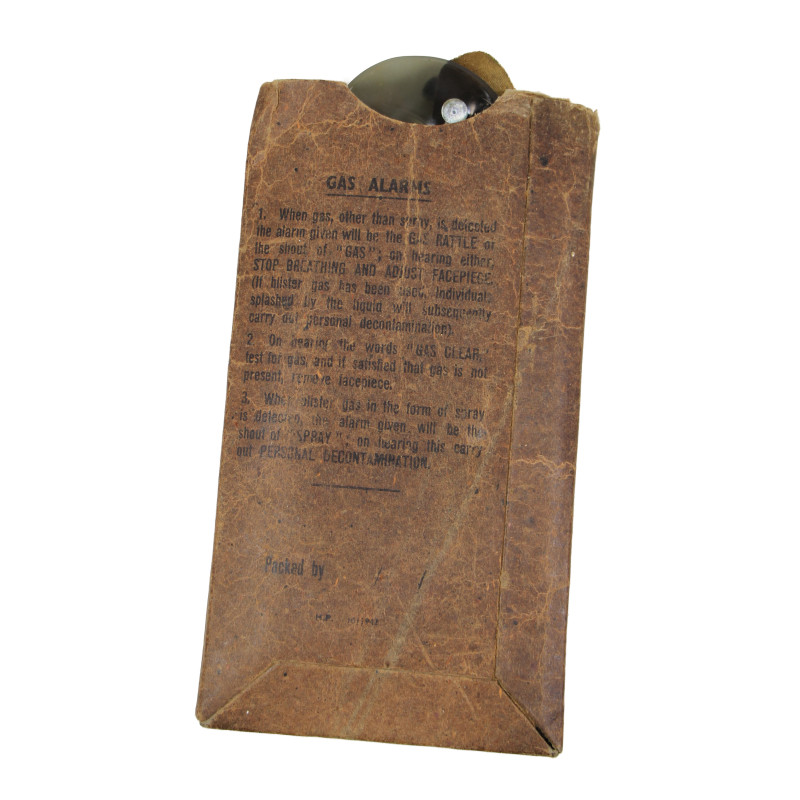 GAS ALARMS
1. When gas, other than spray, is detected
the alarm given will be the GAS RATTLE or
the shout of "GAS"; on hearing either,
STOP BREATHING AND ADJUST FACEPIECE
(If blister gas has been used, individuals
splashed by the liquid will subsequently
carry out personal decontamination).
2 On hearing the words "GAS CLEAR,
test for gas, and if satisfied that gas is not
present, remove facepiece.
3. When blister gas in the form of spray
is detected, the alarm given will be the
shout of "SPRAY"; on hearing this carry
out PERSONAL DECONTAMINATION.
Packed by